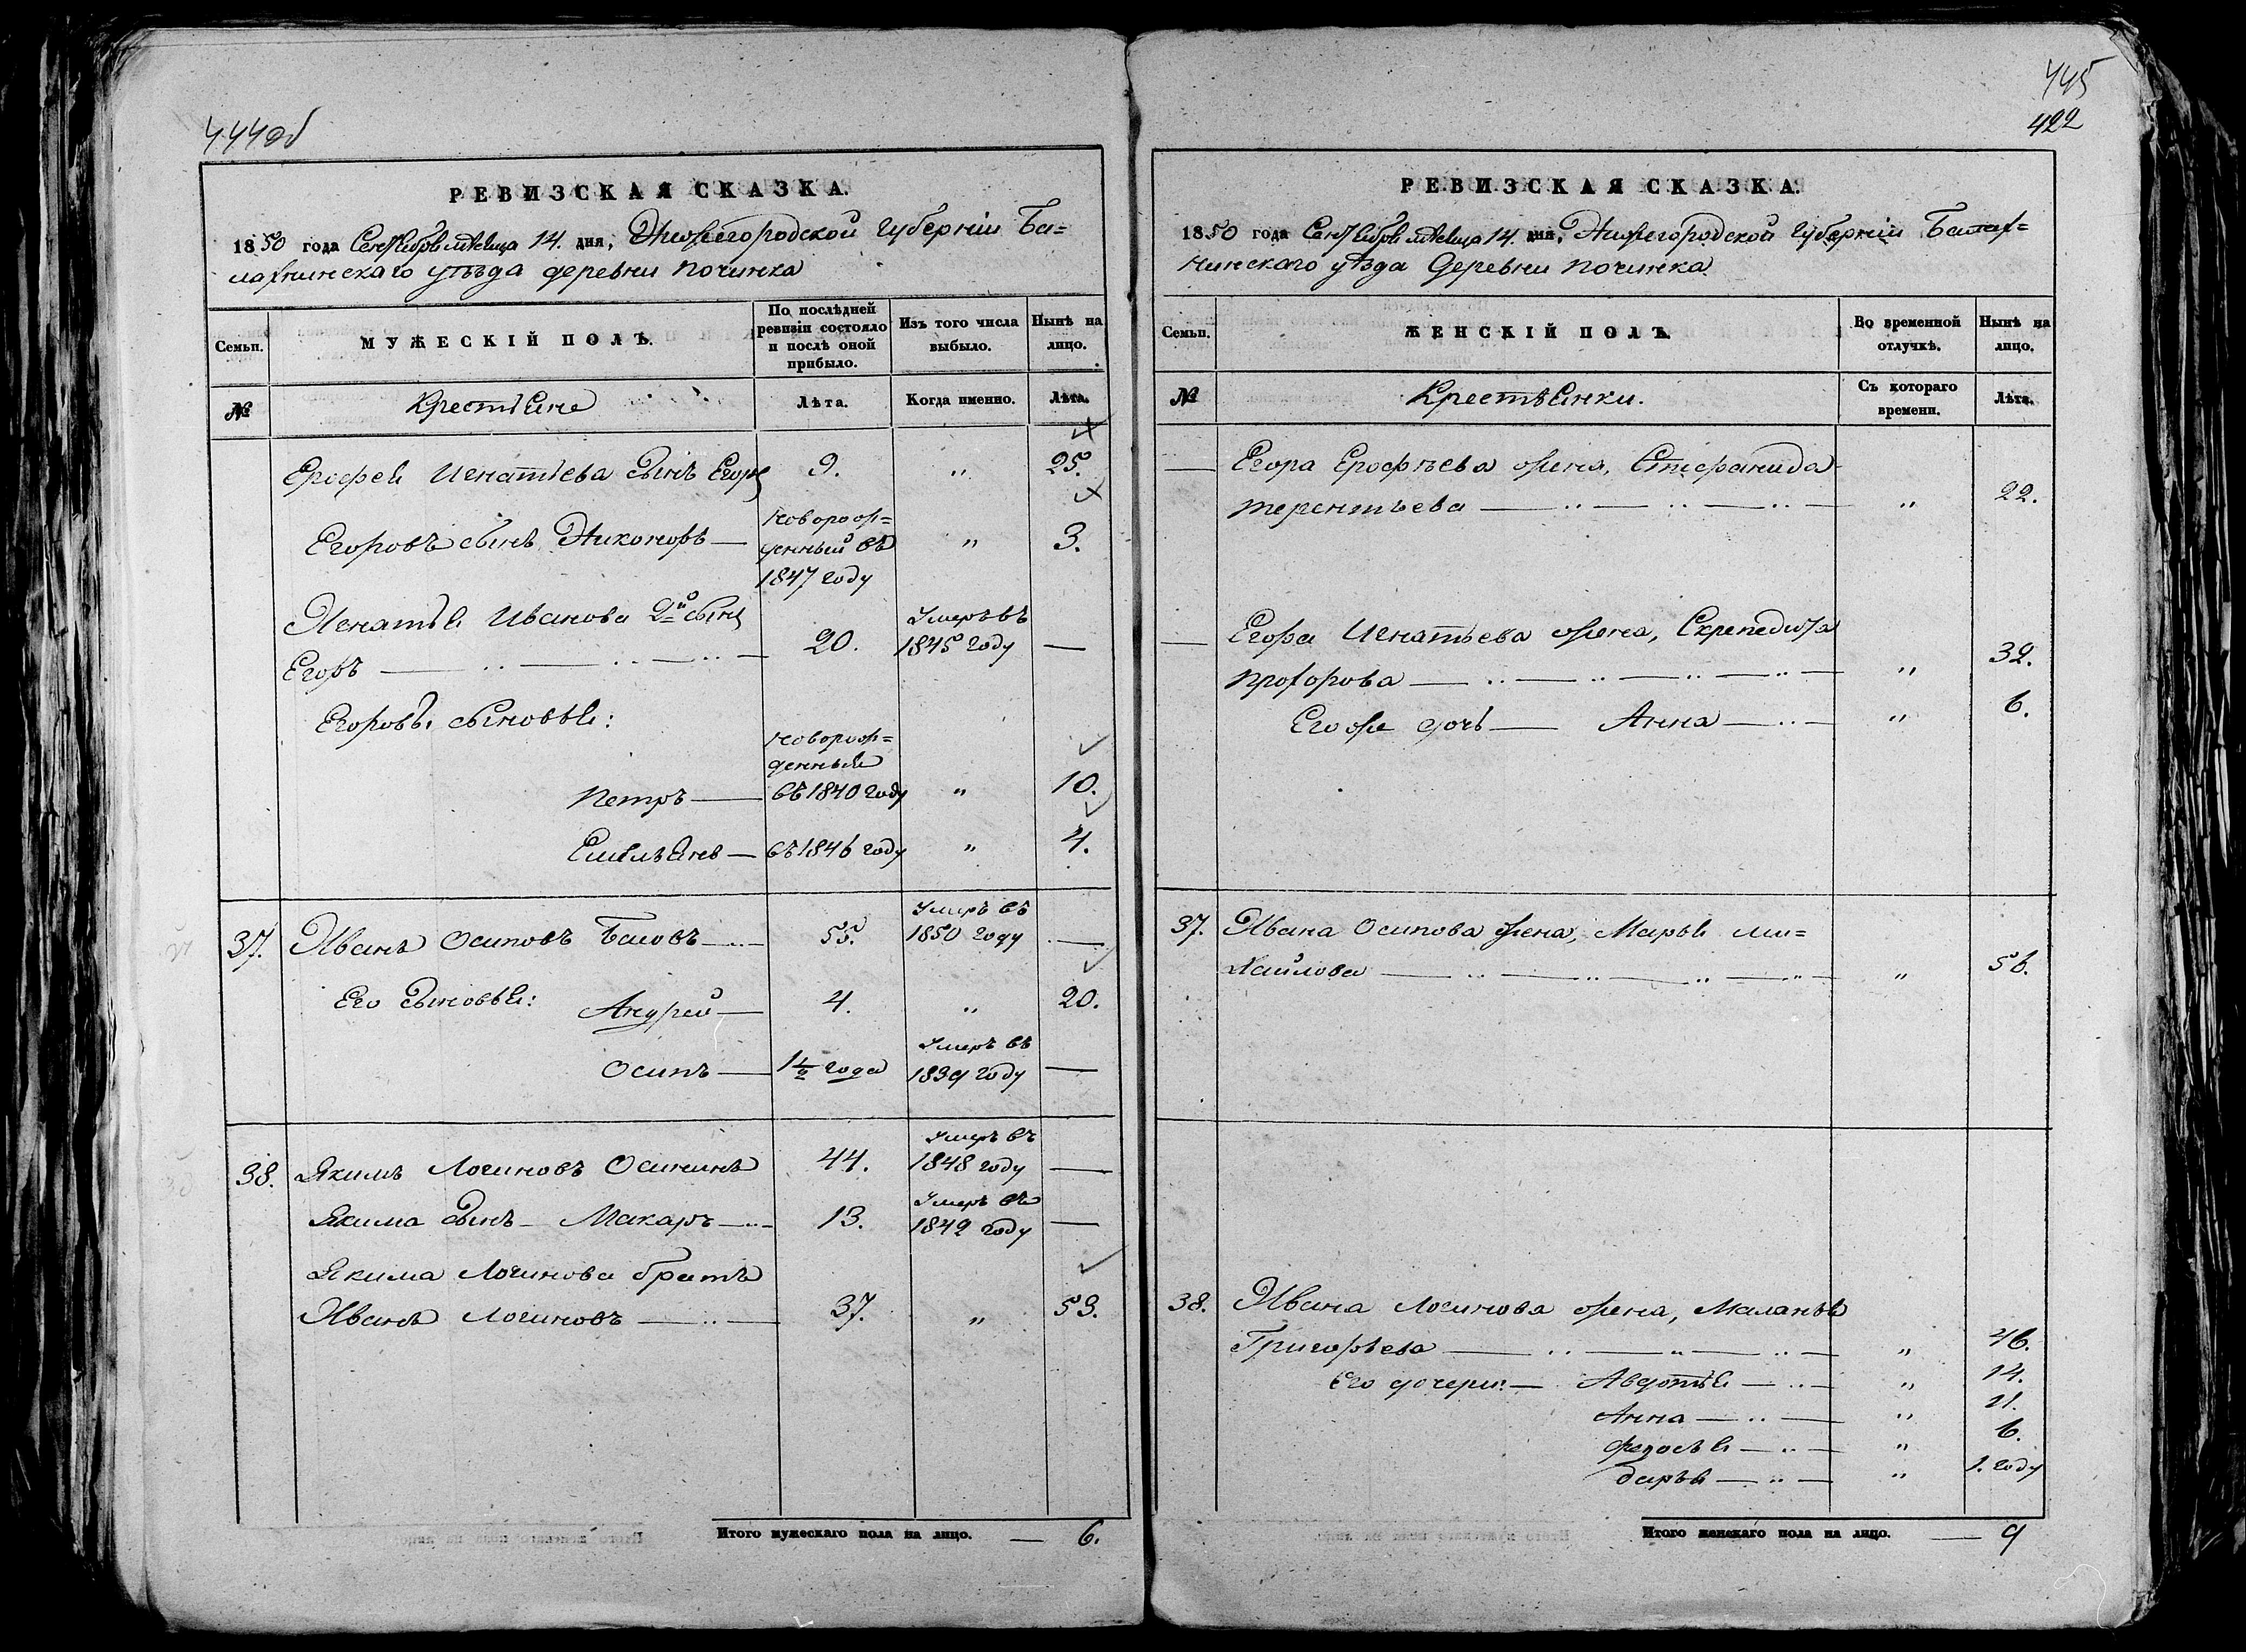 444об
РЕВИЗСКАЯ СКАЗКА.
1850 года Сентября месяца 14. дня, Нижегородской губернiи Ба=
лахнинскаго уѣзда деревни Починка
Семьи.
МУЖЕСКIЙ ПОЛЪ.
По послѣдней
ревизiи состояло
и послѣ оной
прибыло.
Изъ того числа
выбыло.
Нынѣ на
лицо.
№
Крестьяне
Лѣта.
Когда именно.
Лѣта.
Ерофея Игнатьева сынъ Егоръ 9. „ 25.
Егоровъ сынъ Никоноръ —
новорож=
денный въ
1847 году
„ 3.
Игнатья Иванова 2й сынъ
Егоръ — 20.
Умеръ въ
1845 году —
Егоровы сыновья:
Петръ —
новорож=
денный
въ 1840 году „ 10.
Емельянъ — въ 1846 году „ 4.
37. Иванъ Осиповъ Баовъ — 55.
Умеръ въ
1850 году —
Его сыновья: Андрей — 4. „ 20.
Осипъ — 1½ года
Умеръ въ
1839 году —
38. Якимъ Логиновъ Осининъ 44.
Умеръ въ
1848 году —
Якима сынъ — Макаръ — 13.
Умеръ въ
1842 году —
Якима Логинова братъ
Иванъ Логиновъ — 37. „ 53.
Итого мужескаго пола на лицо. — 6.
445
422
РЕВИЗСКАЯ СКАЗКА.
1850 года Сентября месяца 14. дня, Нижегородской губернiи Балах=
нинскаго уѣзда деревни Починка
Семьи.
ЖЕНСКIЙ ПОЛЪ.
Во временной
отлучкѣ.
Нынѣ на
лицо.
№
Крестьянки.
Съ котораго
времени.
Лѣта.
— Егора Ерофѣева жена, Стефанида
Терентьева — „ 22.
— Егора Игнатьева жена, Скрепедиха
Прохорова — „ 32.
Его же дочь — Анна — „ 6.
37. Ивана Осипова жена, Марья Ми=
хайлова — „ 56.
38. Ивана Логинова жена, Маланья
Григорьева — „ 46.
Его дочери: — Авдотья — „ 14.
Анна — „ 11.
Федосья — „ 6.
Дарья — „ 1. году
Итого женскаго пола на лицо. — 9